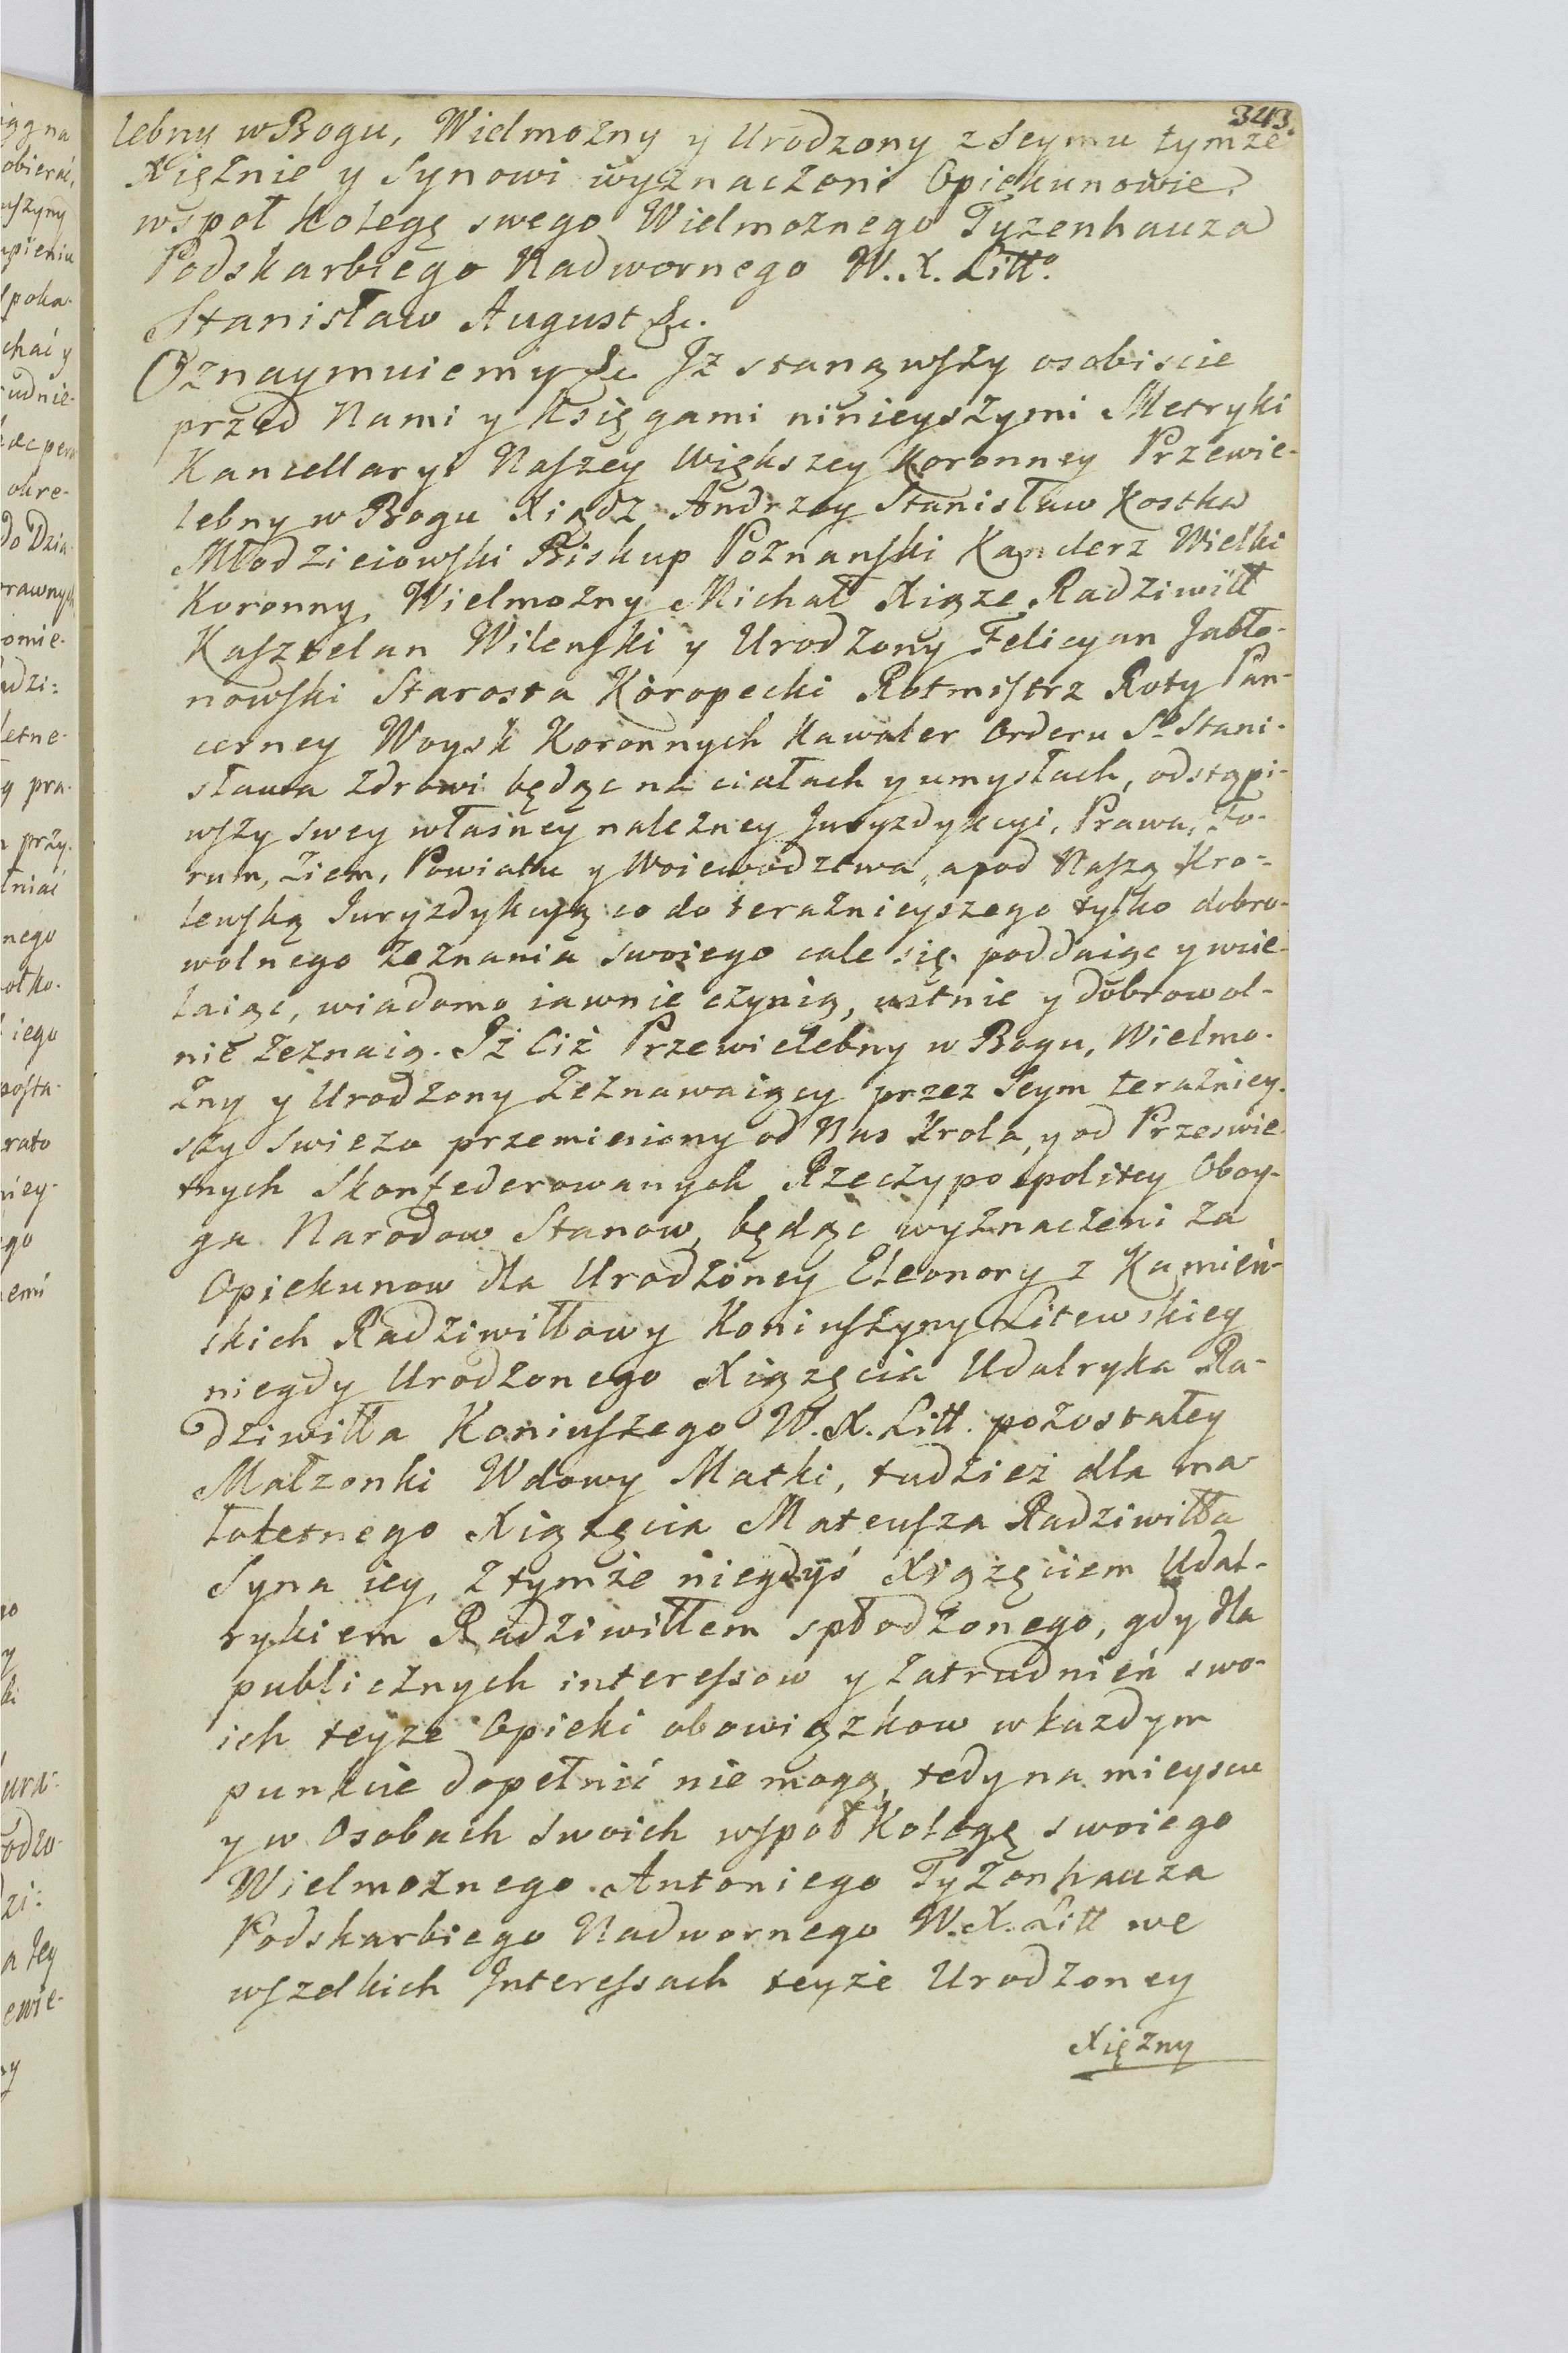 343.
lebny w Bogu, Wielmożny y Urodzony z Seymu tymże
Xiężnie y Synowi wyznaczoni Opiekunowie,
wspoł Kolegę swego Wielmożnego Tyzenhauza
Podskarbiego Nadwornego W. X. Litt.º
Stanisław August &c.
Oznaymuiemy &c Jż stanąwszy osobiscie
przed Nami y Księgami ninieyszymi Metryki
Kancellaryi Naszey Większey Koronney Przewie-
lebny w Bogu Xiądz Andrzey Stanisław Kostka
Młodzieiowski Biskup Poznanski Kanclerz Wielki
Koronny, Wielmożny Michał Xiąże Radziwiłł
Kasztelan Wilenski y Urodzony Felicyan Jabło-
nowski Starosta Koropecki Rotmistrz Roty Pan-
cerney Woysk Koronnych Kawaler Orderu Sº Stani-
sława zdrowi będąc na ciałach y umysłach, odstąpi-
wszy swey własney należney Juryzdykcyi, Prawa, Fo-
rum, Ziem, Powiatu y Woiewodztwa, a pod Naszą Kro-
lewską Juryzdykcyą co do teraznieyszego tylko dobro-
wolnego zeznania swoiego cale się poddaiąc y wcie-
laiąc, wiadomo iawnie czynią, ustnie y dobrowol-
nie zeznaią. Jż Ciż Przewielebny w Bogu, Wielmo-
żny y Urodzony Zeznawaiący przez Seym teraźniey-
szy swieżo przemieniony od Nas Krola, y od Przeswie-
tnych Skonfederowanych Rzeczypospolitey Oboy-
ga Narodow Stanow, będąc wyznaczeni za
Opiekunow dla Urodzoney Eleonory z Kamień-
skich Radziwiłłowy Koniuszyny Litewskiey
niegdy Urodzonego Xiążęcia Udalryka Ra-
dziwiłła Koniuszego W. X. Litt. pozostałey
Małzonki Wdowy Matki, tudzież dla ma-
łoletnego Xiążęcia Mateusza Radziwiłła
Syna iey, z tymże niegdyś Xiążęciem Udal-
rykiem Radziwiłłem spłodzonego, gdy dla
publicznych interessow y zatrudnień swo-
ich teyze Opieki obowiązkow w każdym
punkcie dopełnić nie mogą, tedy na mieyscu
y w Osobach swoich wspoł Kolegę swoiego
Wielmożnego Antoniego Tyzenhauza
Podskarbiego Nadwornego W. X. Litt we
wszelkich Jnteressach teyże Urodzoney
Xiężny